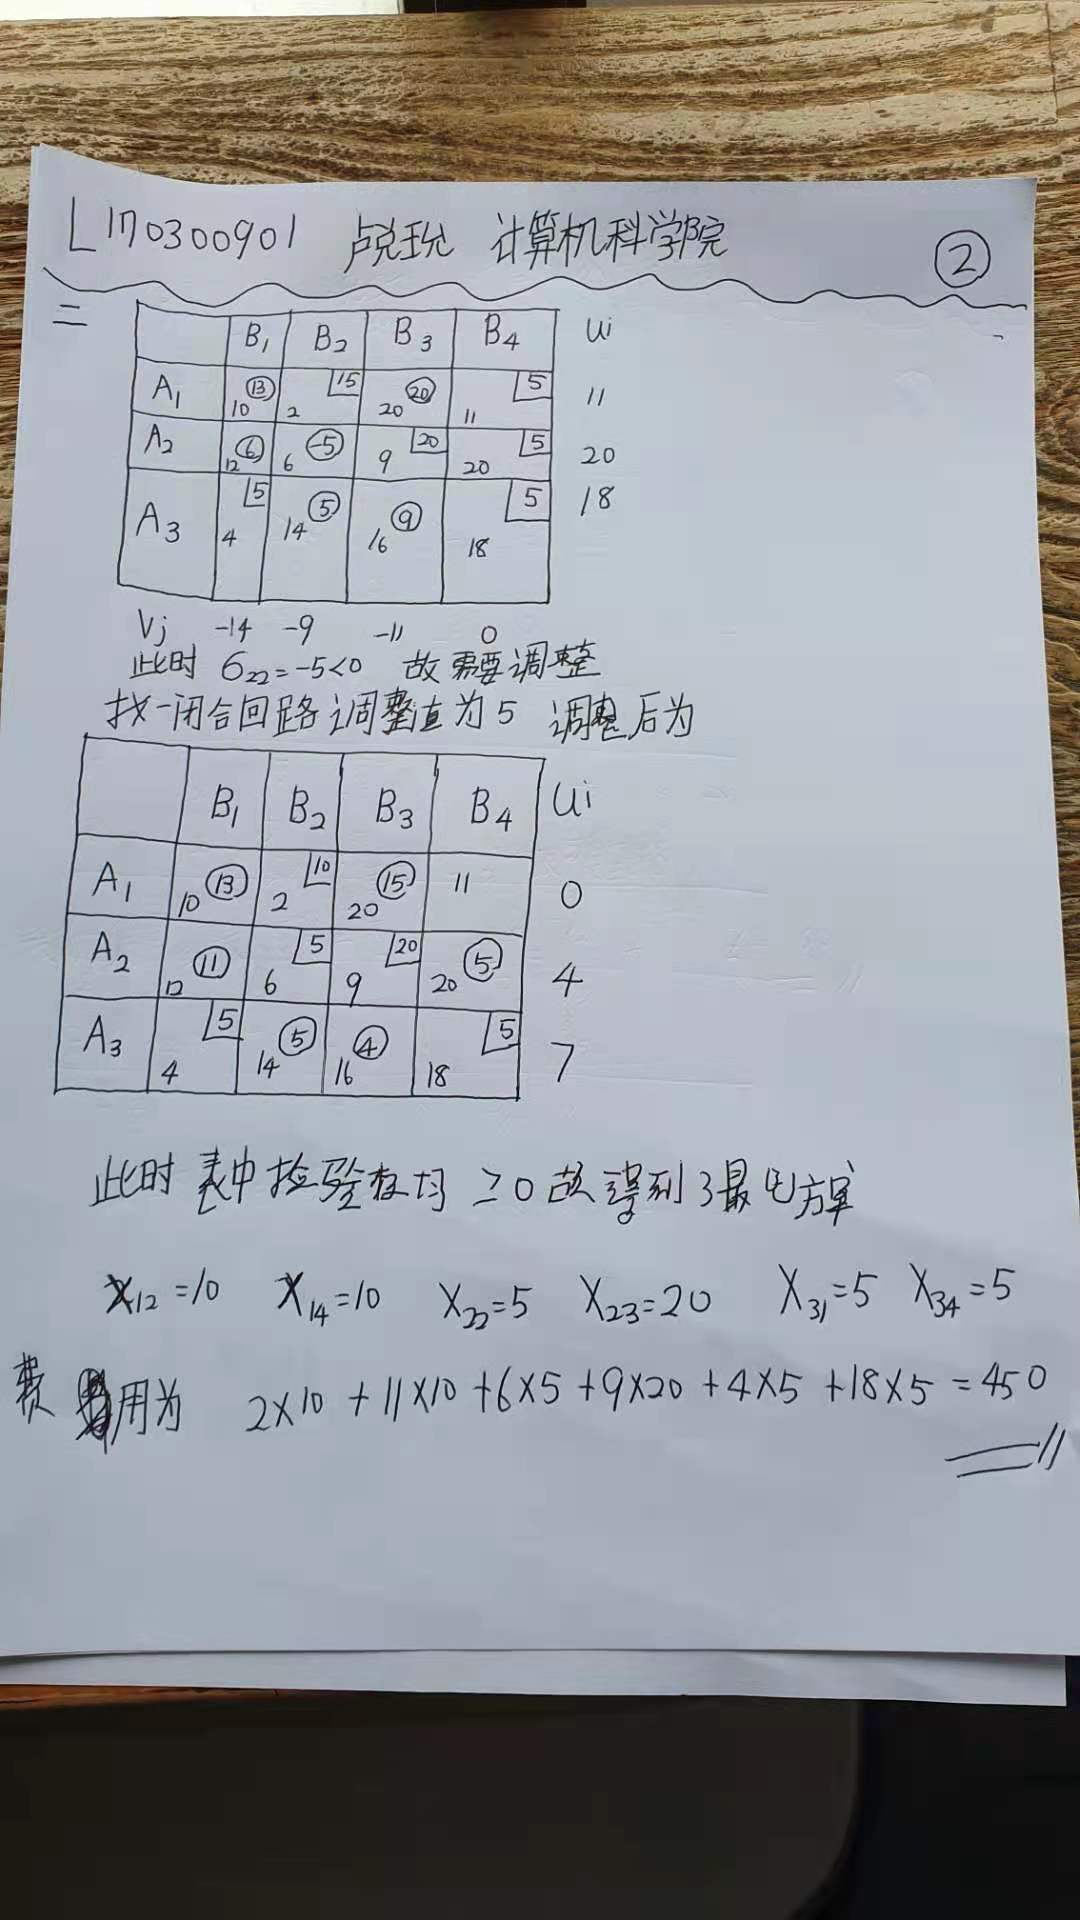 L170300901 卢兑玧 计算机科学院 ②
二
B1 B2 B3 B4 Ui
A1 10 ⑬ 2 15 20 ⑳ 11 5 11
A2 12 ⑥ 6 (-5) 9 20 20 5 20
A3 4 5 14 ⑤ 16 ⑨ 18 5 18
Vj -14 -9 -11 0
此时 б22=-5<0 故需要调整
找一闭合回路调整值为5 调整后为
B1 B2 B3 B4 Ui
A1 10 ⑬ 2 10 20 ⑮ 11 0
A2 12 ⑪ 6 5 9 20 20 ⑤ 4
A3 4 5 14 ⑤ 16 ④ 18 5 7
此时 表中检验数均 ≥0 故得到了最优方案
X12=10 X14=10 X22=5 X23=20 X31=5 X34=5
费用为 2×10+11×10+6×5+9×20+4×5+18×5=450